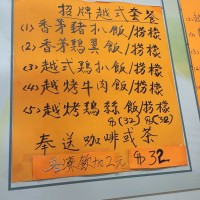 招牌越式套餐
(1) 香茅豬扒飯/撈檬
(2) 香茅鷄翼飯/撈檬
(3) 越式鷄扒飯/撈檬
(4) 越烤牛肉飯/撈檬
(5) 越烤鷄絲飯/撈檬
$(32) $(38)
奉送咖啡或茶
冬凉飲加2元 $32